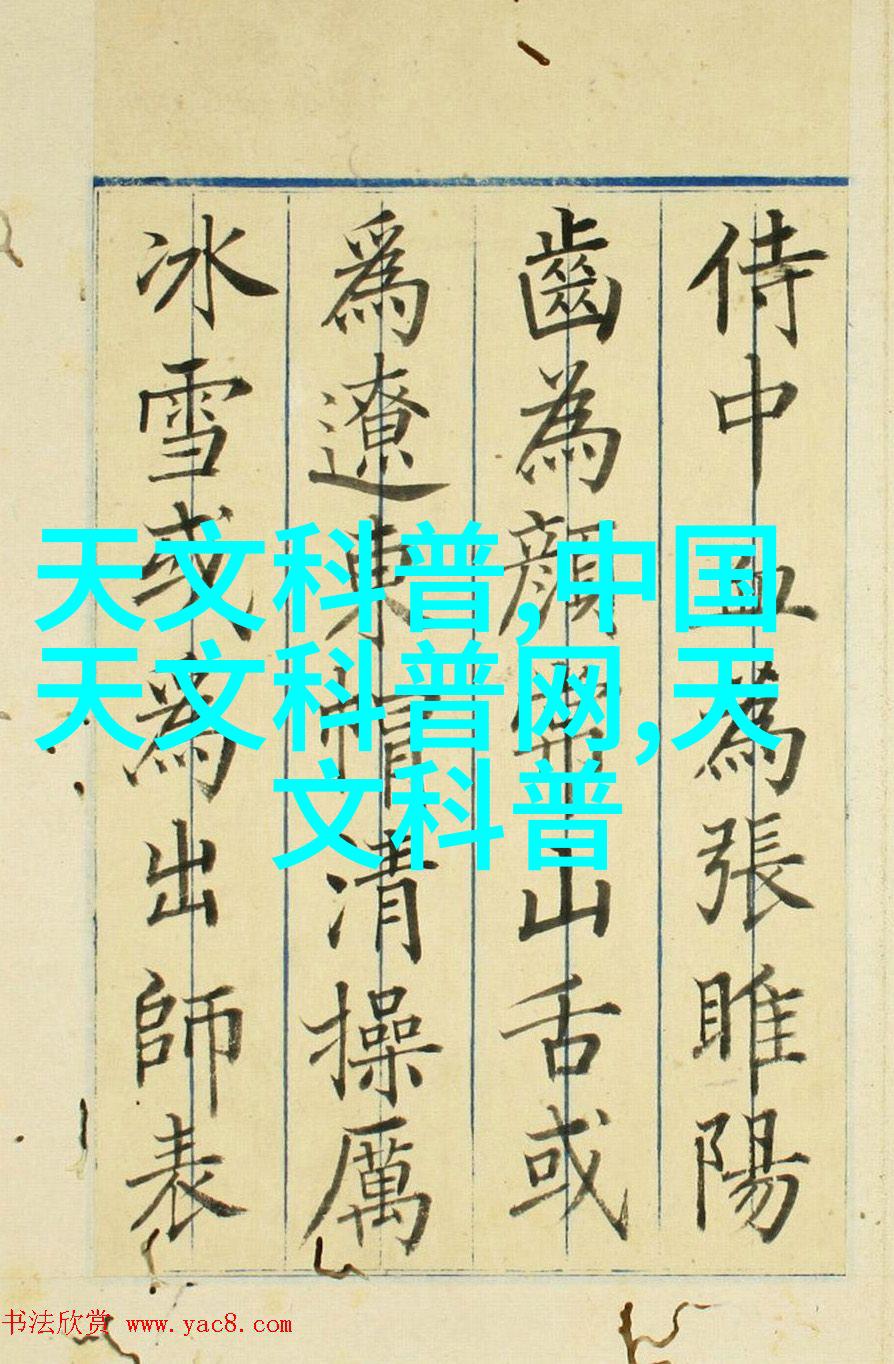 侍中血為張睢陽
齒為顏常山舌或
爲遼東帽清操厲
冰雪或爲出師表
天文科普,中国
天文科普网,天
文科普
书法欣赏 www.yac8.com